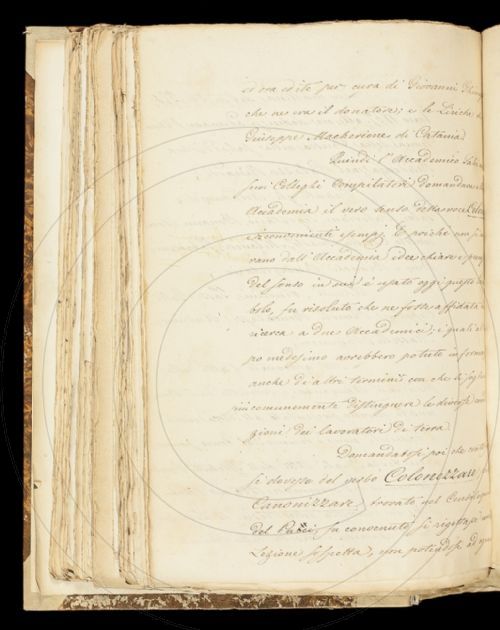 ed ora edite per cura di Giovanni
che ne era il donatore; e le Liriche
Giuseppe Macherione di Catania.
Quindi l'Accademico
suoi Colleghi Compilatori domandava
Accademia il vero senso della voce
i convenienti esempj. E poiché non si
vano dall'Accademia idee chiare e
del senso in cui è usato oggi questo
bolo, fu risoluto che ne fosse affidata
ricerca a due Accademici; i quali
po medesimo avrebbero potuto informa
anche di altri termini con che si
comunemente distinguere le diverse
zioni dei lavoratori di terra.
Domandatosi poi che
si dovesse del verbo Colonizzare
Canonizzare, trovato nel
del Pucci, fu convenuto si rigettasse
Lezione sospetta, non potendosi ad